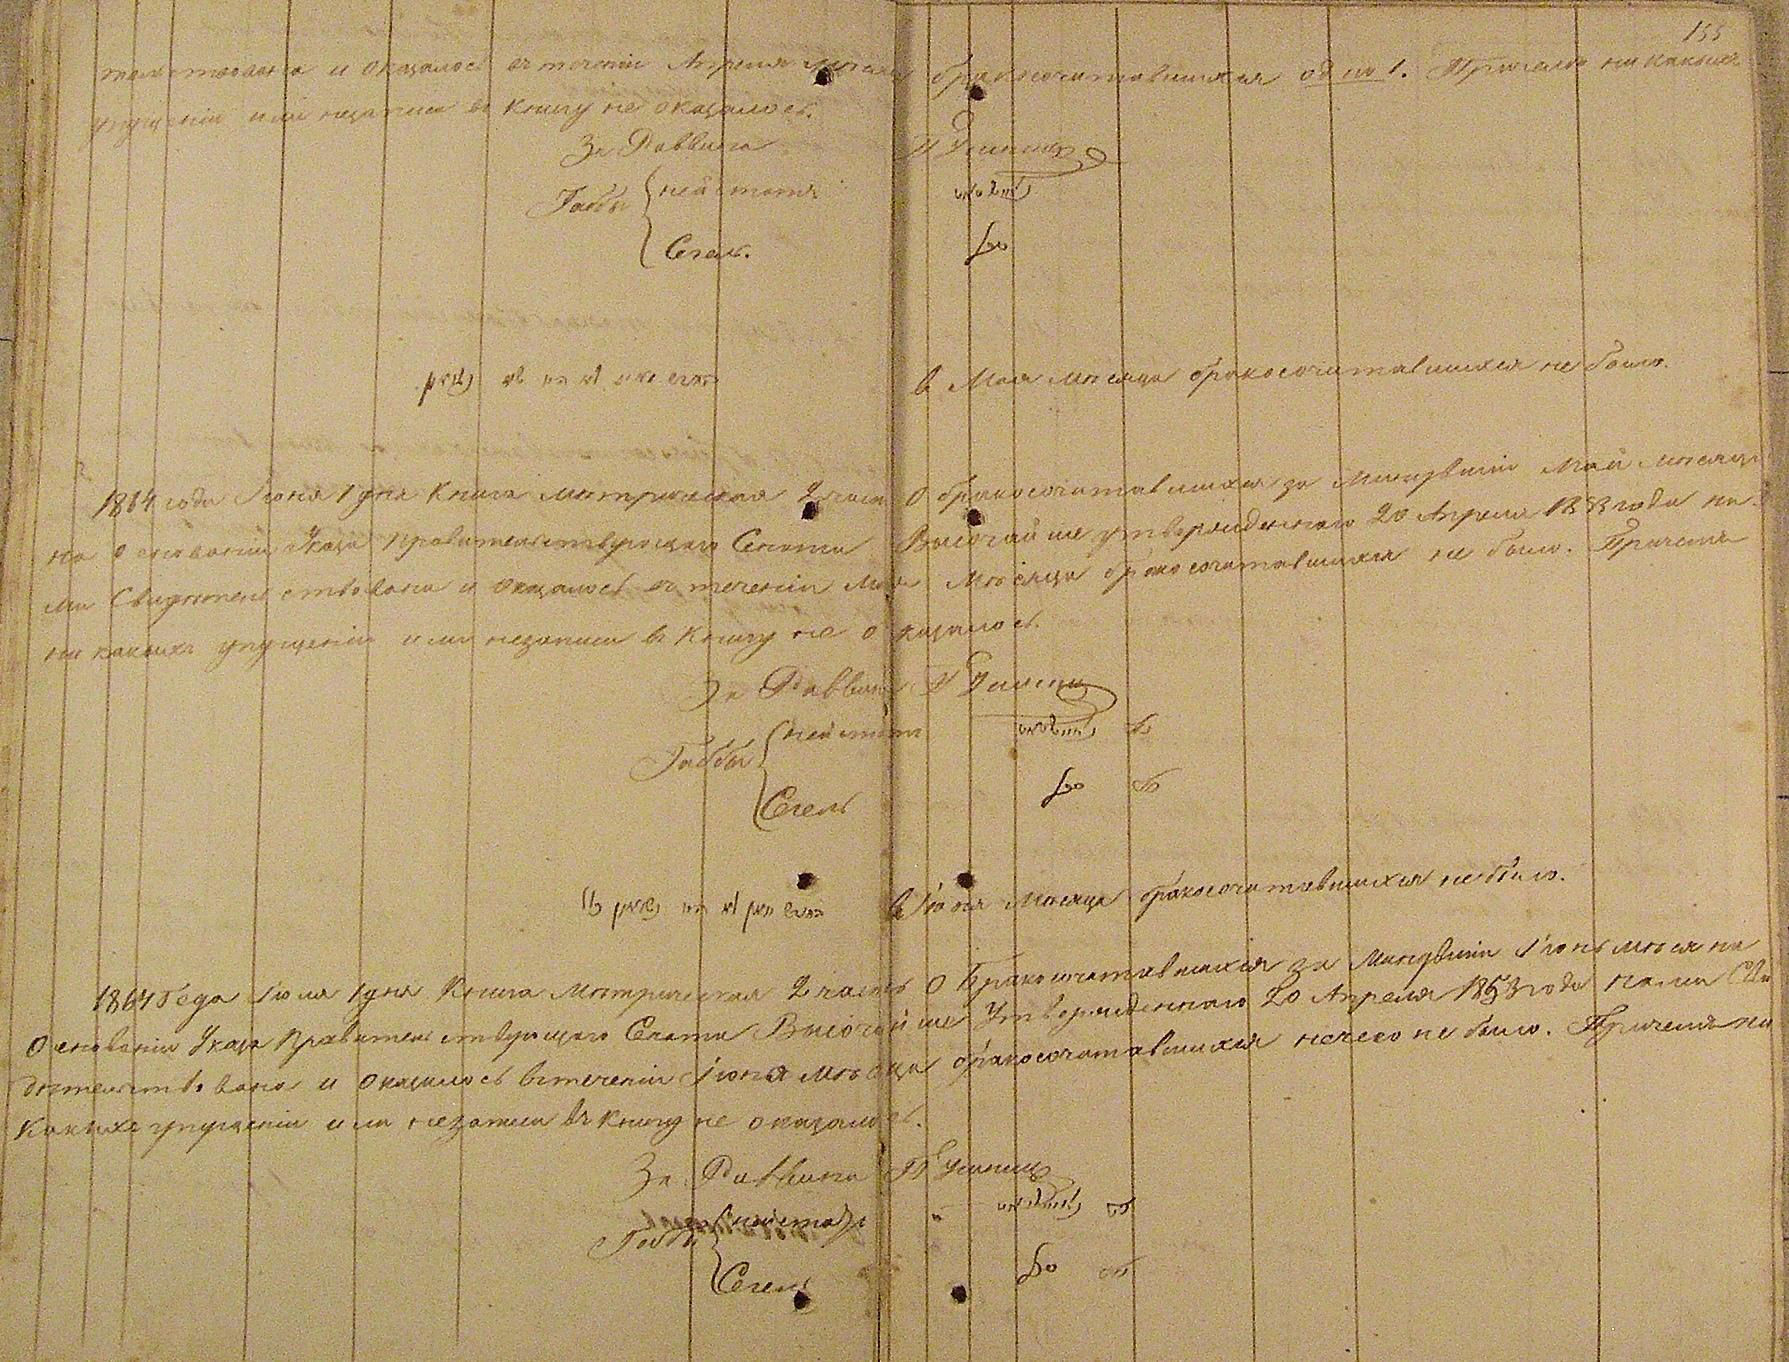 155
и оказалось въ течении Апреля месяца бракосочитавшихся одно 1. Причемъ ни какихъ
упущении или незаписи въ книгу не оказалось.
За Раввина
Габбы нейстатъ
Сегаль.
סג״ל
в Мая месяца бракосочитавшихся не было.
1864 года Іюня 1 дня Книга метрическая 2 часть О бракосочитавшихся за Минувшіи Май месяцъ
на основаніи указа Правительствующаго Сената Высочайше утвержденнаго 20 Апреля 1853 года на-
ми Свидетельствована и оказалось въ теченіи Мая месяца бракосочитавшихся не было. Причемъ
ни какихъ упущеніи или незаписи въ книгу не оказалось.
За Раввина
Габбы нейстатъ
Сегель
סג״ל
в Іюня месяца бракосочитавшихся не было.
1864 Года Іюля 1 дня Книга Метрическая 2 часть О Бракосочитавшихся за Минувшіи Іюнь месяц на
Основаніи Указа Правительствующаго Сената Высочайше Утвержденнаго 20 Апреля 1853 года нами Сви
детельствована и оказалось в течении Іюня месяца бракосочитавшихся нечего не было. Причемъ ни
какихъ упущеніи или незаписи въ книгу не оказалось.
За Раввина
Габбы нейстатъ
Сегель
סג״ל